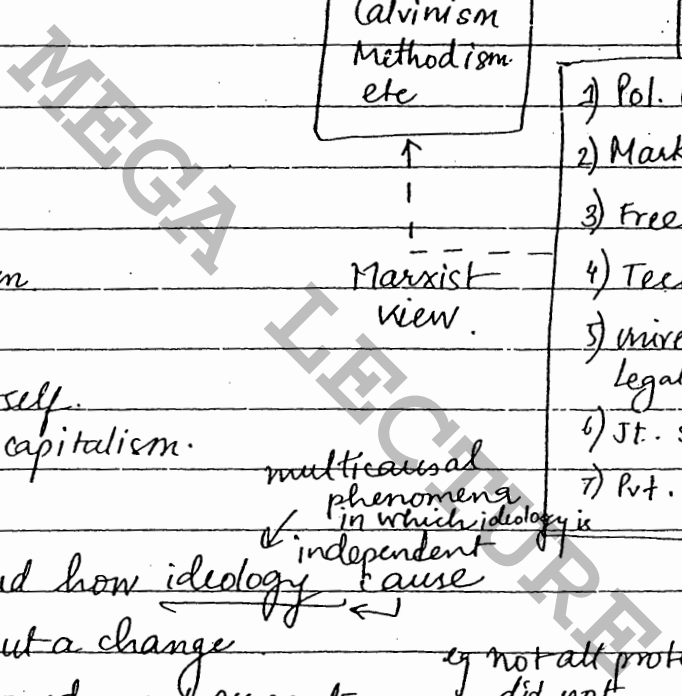 Calvinism
Methodism.
etc
1) Pol.
2) Mark
3) Free
4) Tec
5) unive
Legal
6) Jt. S
7) Pvt.
Marxist
view.
self.
capitalism.
multicausal
phenomena
in which ideology is
independent
how ideology cause
a change
eg not all prot
did not
MEGA LECTURE